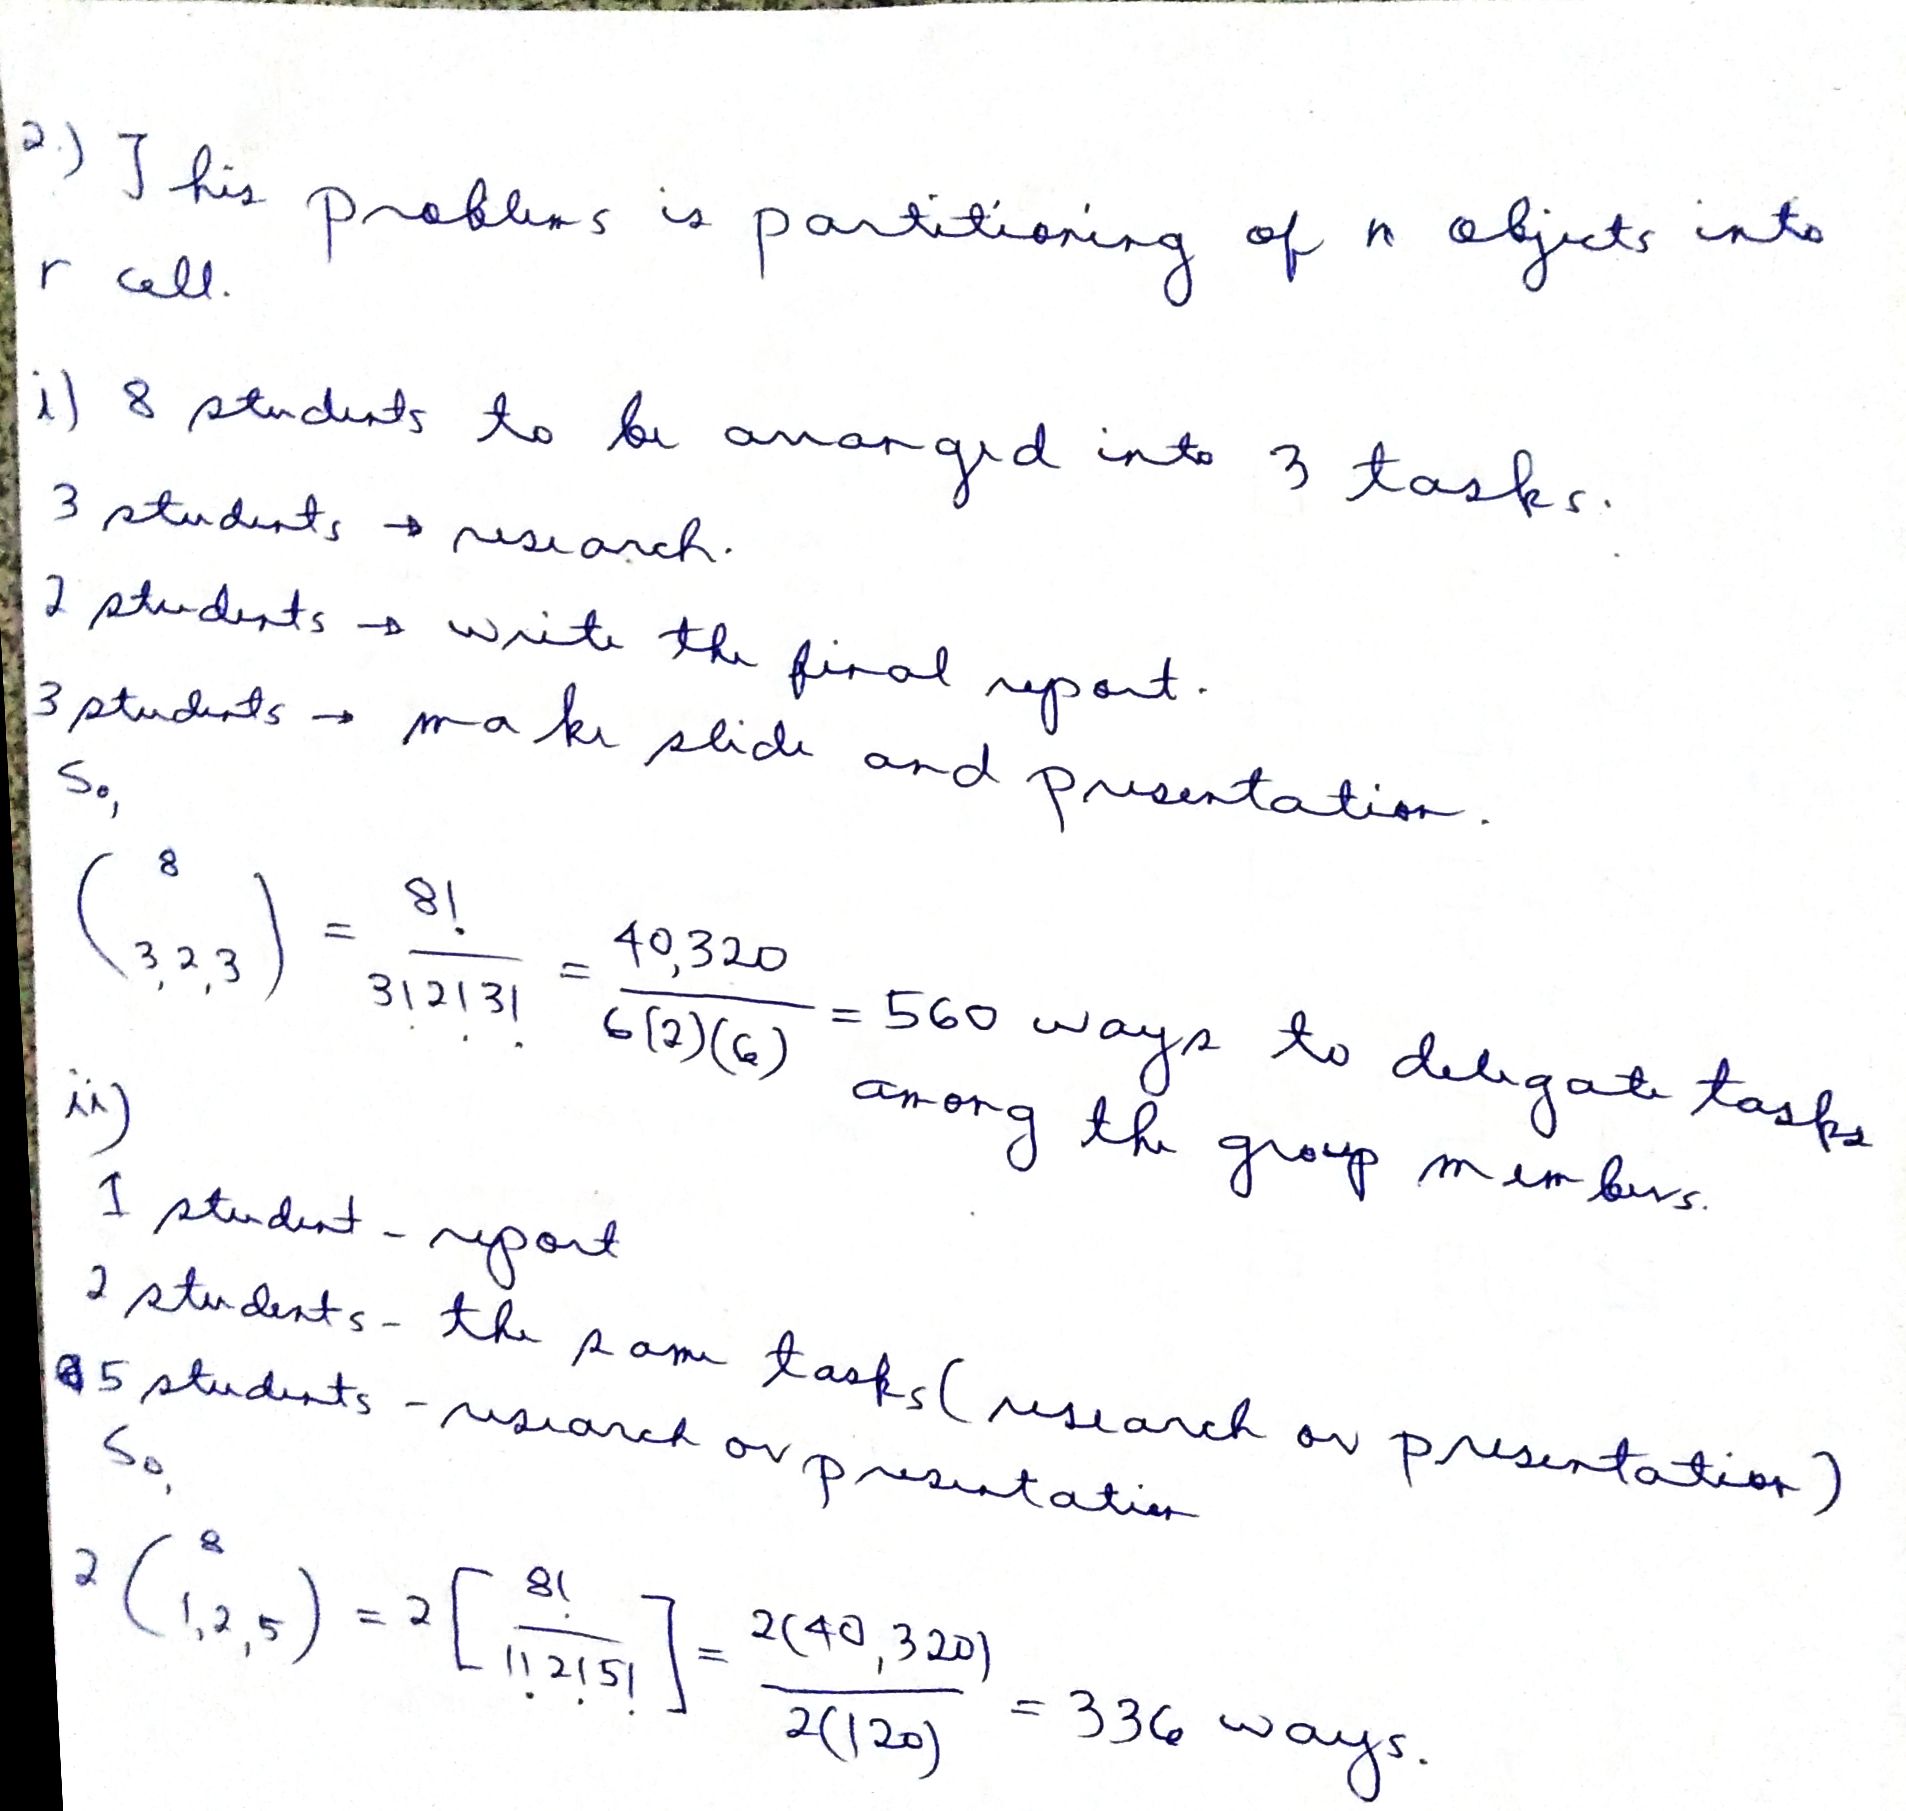 2.) This problems is partitioning of n objects into
r cell.
i) 8 students to be arranged into 3 tasks.
3 students → research.
2 students → write the final report.
3 students → make slide and presentation.
So,
(8 3,2,3) = 8!/3!2!3! = 40,320/6(2)(6) = 560 ways to delegate tasks
among the group members.
ii)
1 student - report
2 students - the same tasks (research or presentation)
5 students - research or presentation
So,
2(8 1,2,5) = 2[8!/1!2!5!] = 2(40,320)/2(120) = 336 ways.